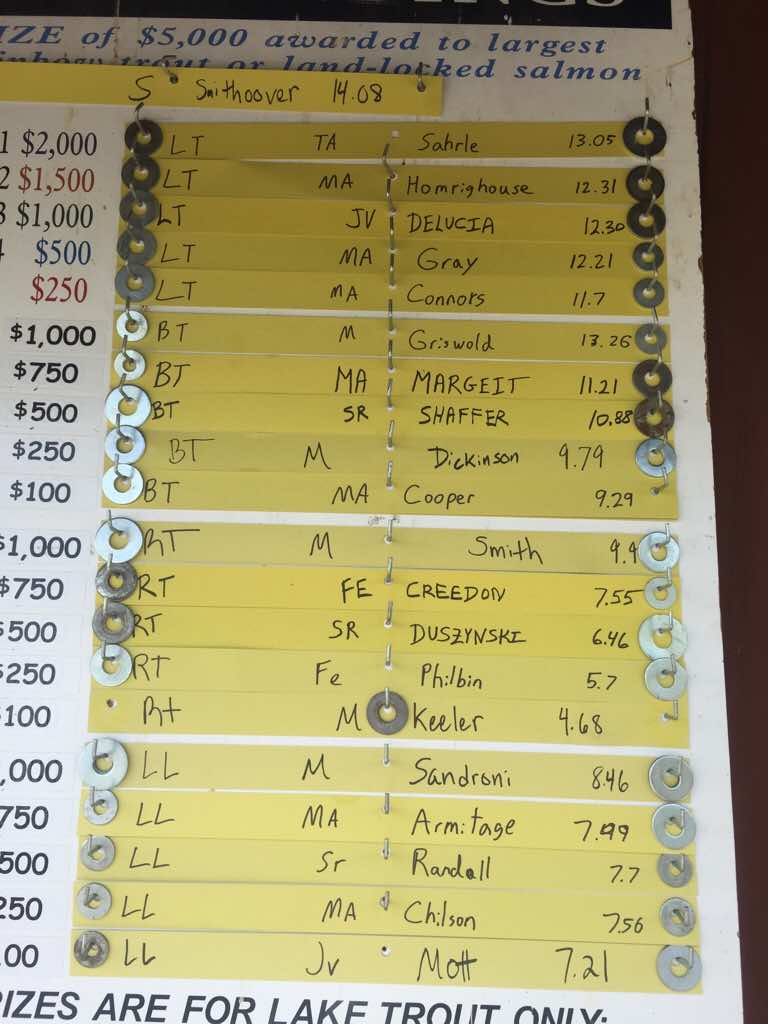 IZE of $5,000 awarded to largest
inbow trout or land-locked salmon
S Smithoover 14.08
1 $2,000 LT TA Sahrle 13.05
2 $1,500 LT MA Homrighouse 12.31
3 $1,000 LT JV DELUCIA 12.30
$500 LT MA Gray 12.21
$250 LT MA Connors 11.7
$1,000 BT M Griswold 13.26
$750 BT MA MARGEIT 11.21
$500 BT SR SHAFFER 10.88
$250 BT M Dickinson 9.79
$100 BT MA Cooper 9.29
$1,000 RT M Smith 9.9
$750 RT FE CREEDON 7.55
$500 RT SR DUSZYNSKI 6.46
$250 RT Fe Philbin 5.7
100 Rt M Keeler 4.68
,000 LL M Sandroni 8.46
750 LL MA Armitage 7.99
500 LL Sr Randall 7.7
250 LL MA Chilson 7.56
00 LL Jv Mott 7.21
RIZES ARE FOR LAKE TROUT ONLY: